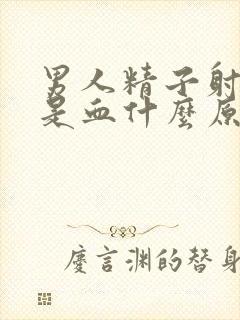 男人精子射
是血什麼原
慶言淵的替身